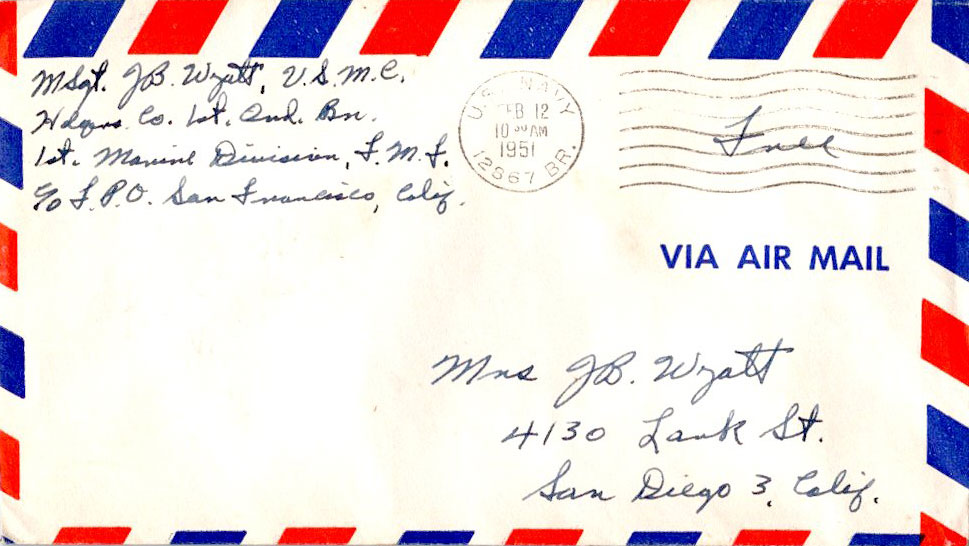 MSgt. JB. Wyatt, U.S.M.C.
Hdqrs. Co. 1st. Ord. Bn.
1st. Marine Division, F.M.F.
c/o F.P.O. San Francisco, Calif.
U.S. NAVY
FEB 12
10 30 AM
1951
12867 BR.
Free
VIA AIR MAIL
Mrs JB. Wyatt
4130 St.
San Diego 3, Calif.